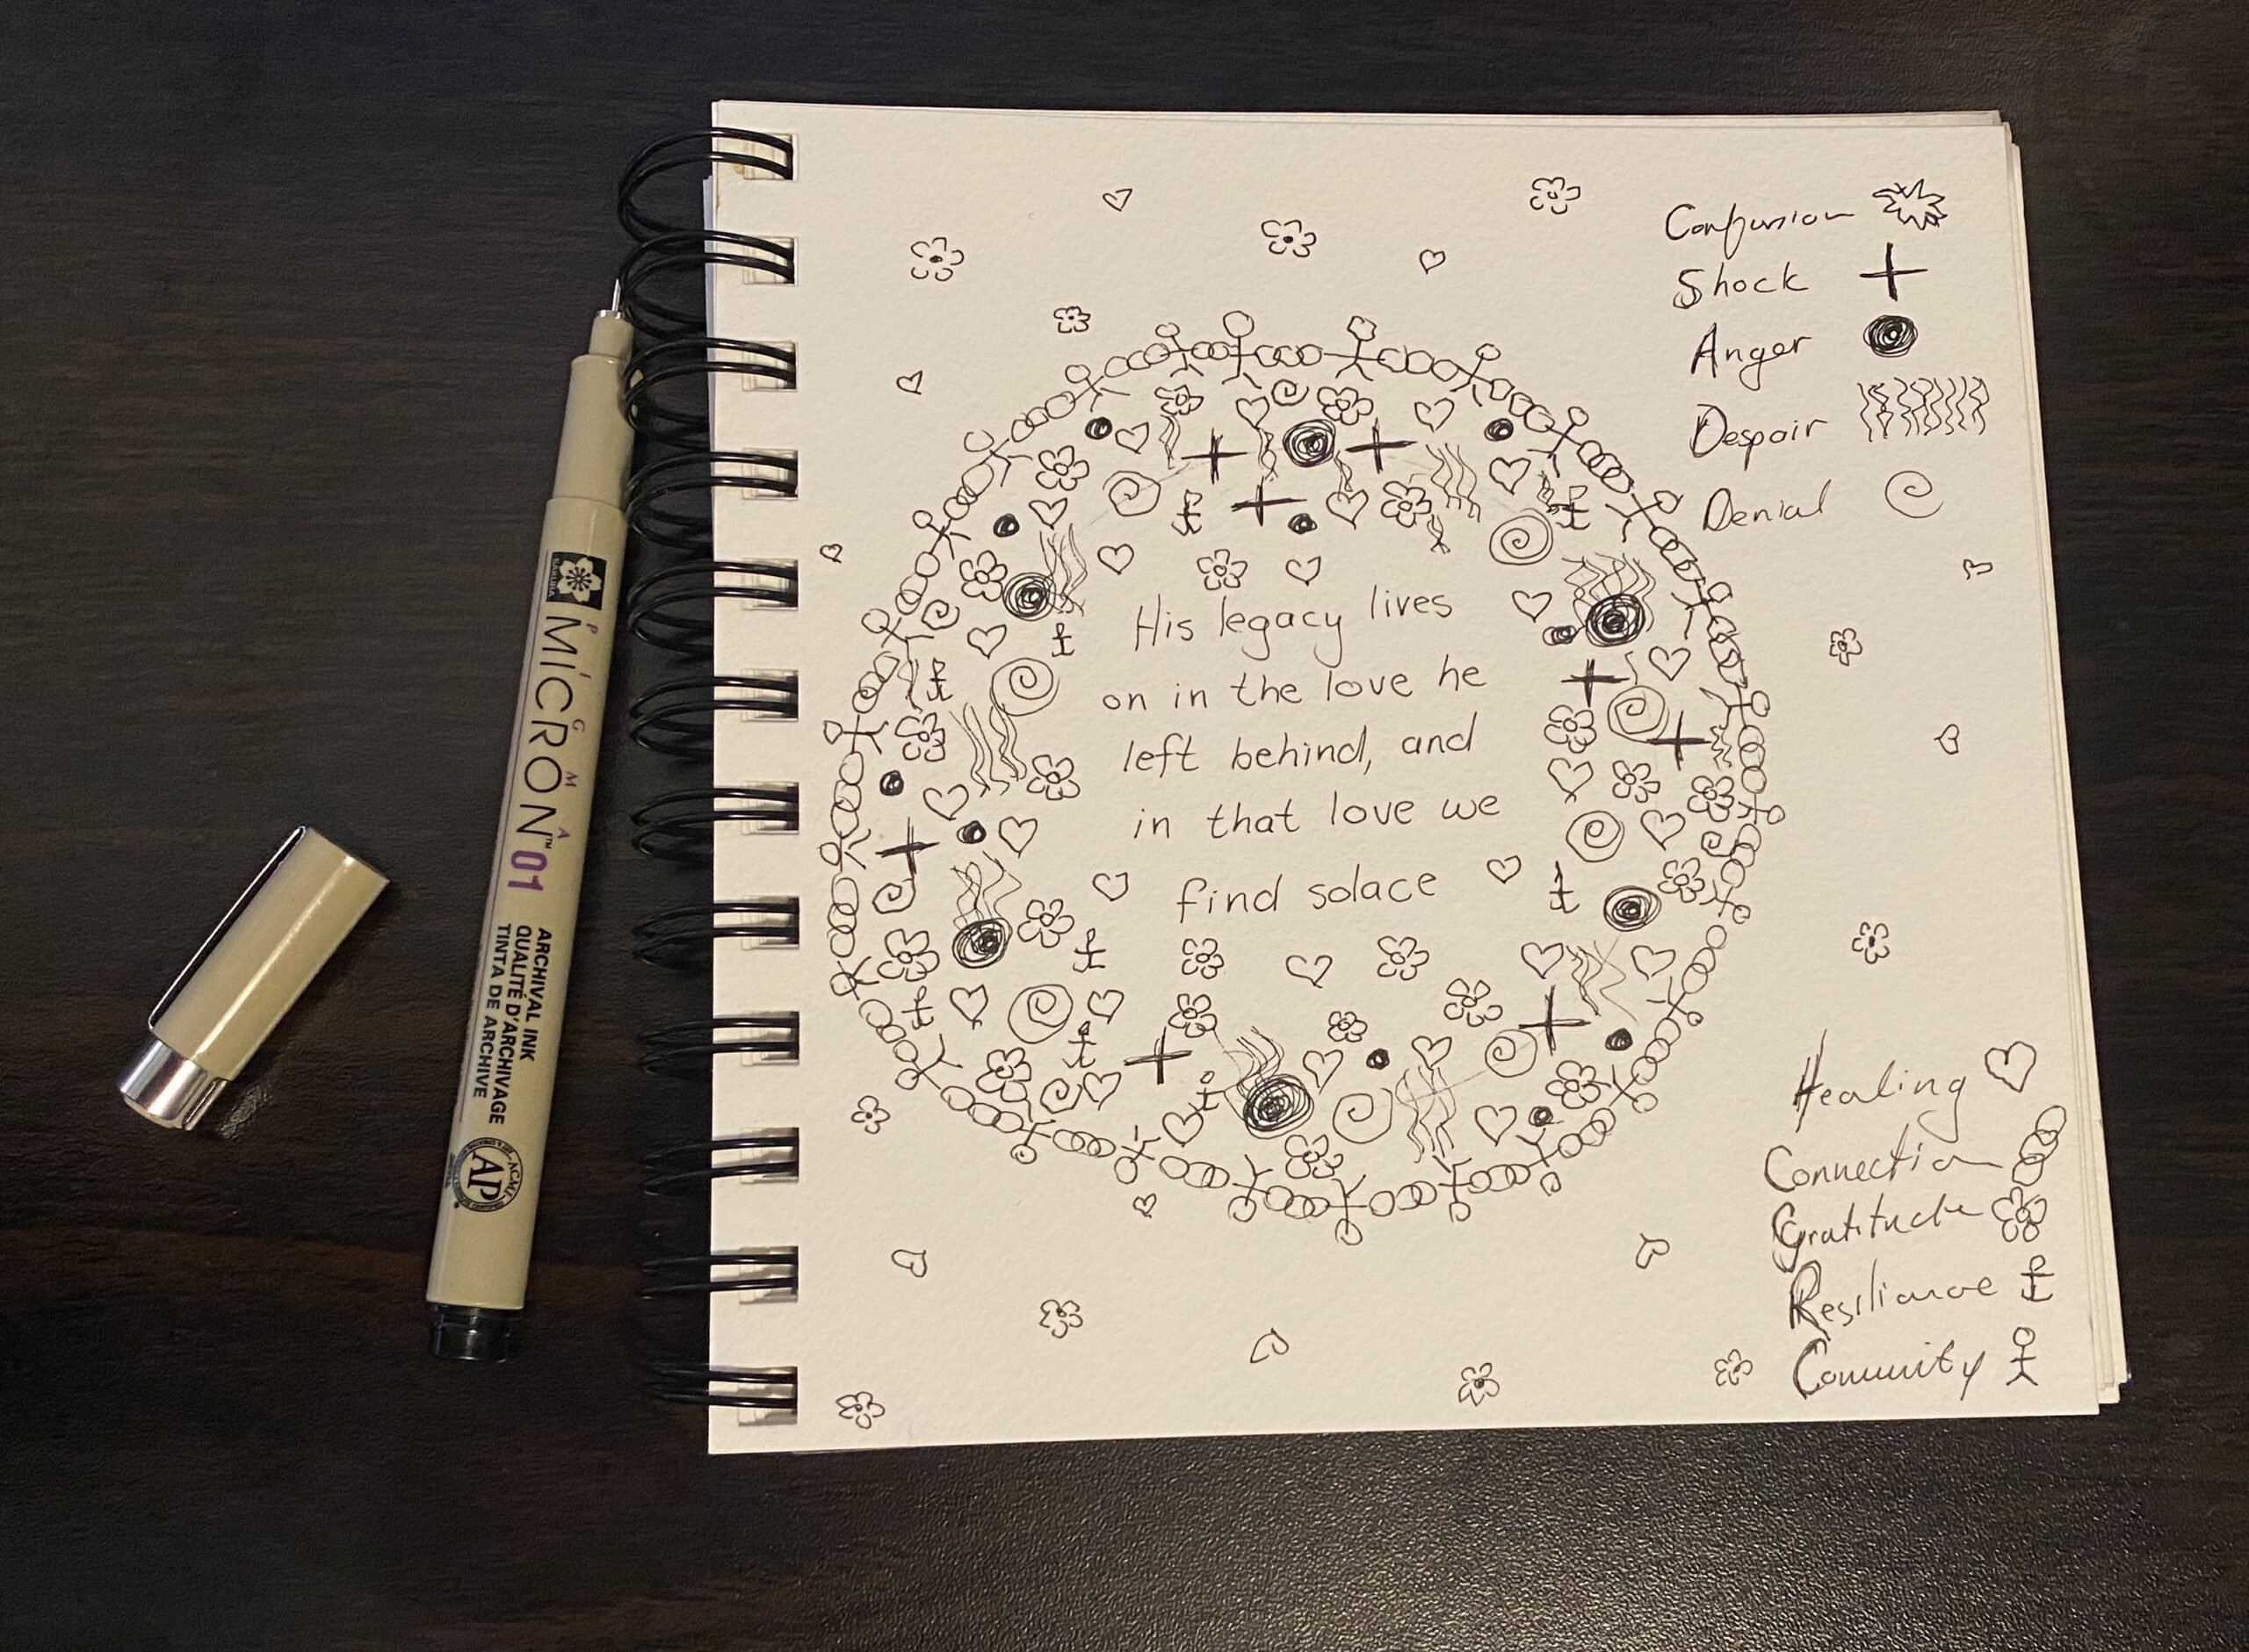 Confusion
Shock
Anger
Despair
Denial
His legacy lives
on in the love he
left behind, and
in that love we
find solace
Healing
Connection
Gratitude
Resiliance
Comunity
SAKURA
PIGMA
MICRON™ 01
ARCHIVAL INK
QUALITÉ D'ARCHIVAGE
TINTA DE ARCHIVE
AP